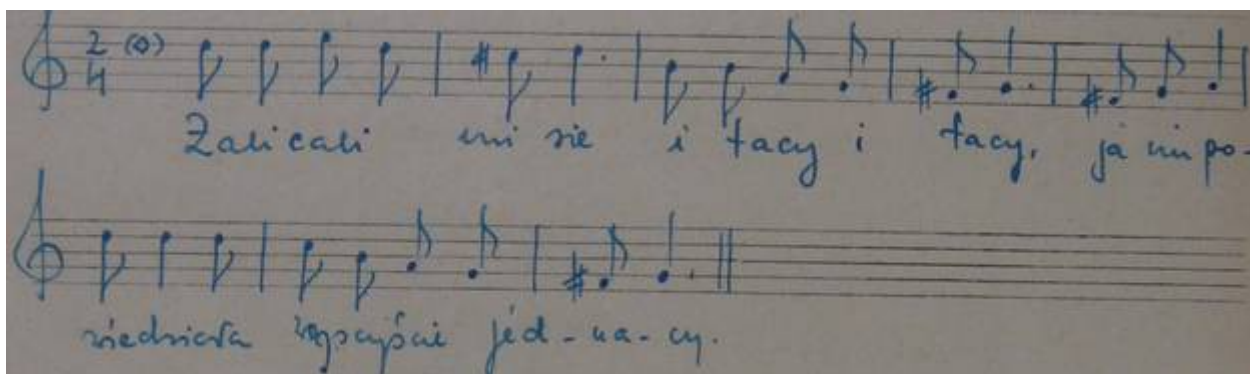 2/4 (◊)
Zalicali mi sie i tacy i tacy, ja im po-
wiedziała wsyjscie jéd-na-cy.